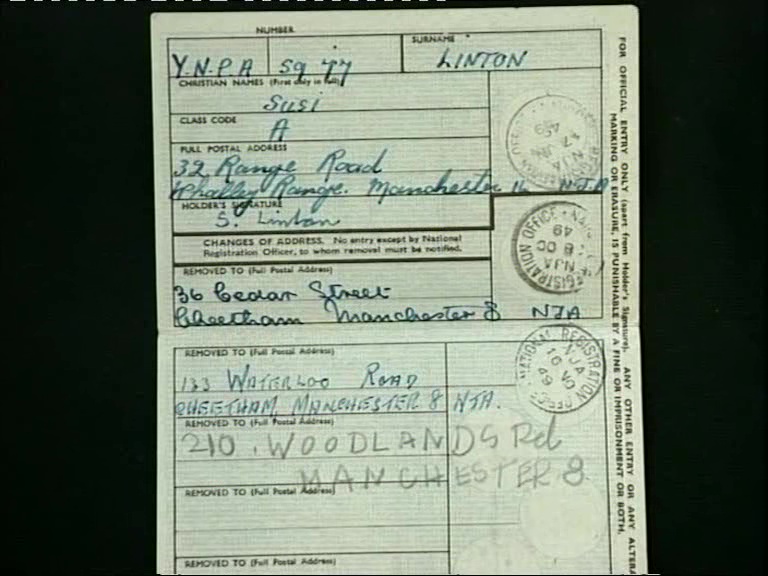 NUMBER
SURNAME
Y.N.P.A 59 77 LINTON
CHRISTIAN NAMES (First only in full)
Susi
CLASS CODE
A
FULL POSTAL ADDRESS
32 Range Road
Whalley Range. Manchester 16 NJA
HOLDER'S SIGNATURE
S. Linton
CHANGES OF ADDRESS. No entry except by National
Registration Officer, to whom removal must be notified.
REMOVED TO (Full Postal Address)
36 Cedar Street
Cheetham Manchester 8 NJA
REMOVED TO (Full Postal Address)
133 WATERLOO ROAD
CHEETHAM, MANCHESTER 8 NJA.
REMOVED TO (Full Postal Address)
210, WOODLANDS Rd
MANCHESTER 8
REMOVED TO (Full Postal Address)
REMOVED TO (Full Postal Address)
FOR OFFICIAL ENTRY ONLY (apart from Holder's Signature). ANY OTHER ENTRY OR ANY ALTERA
MARKING OR ERASURE, IS PUNISHABLE BY A FINE OR IMPRISONMENT OR BOTH.
NATIONAL REGISTRATION OFFICE
NJA
49
REGISTRATION OFFICE
8 OC
49
NJA